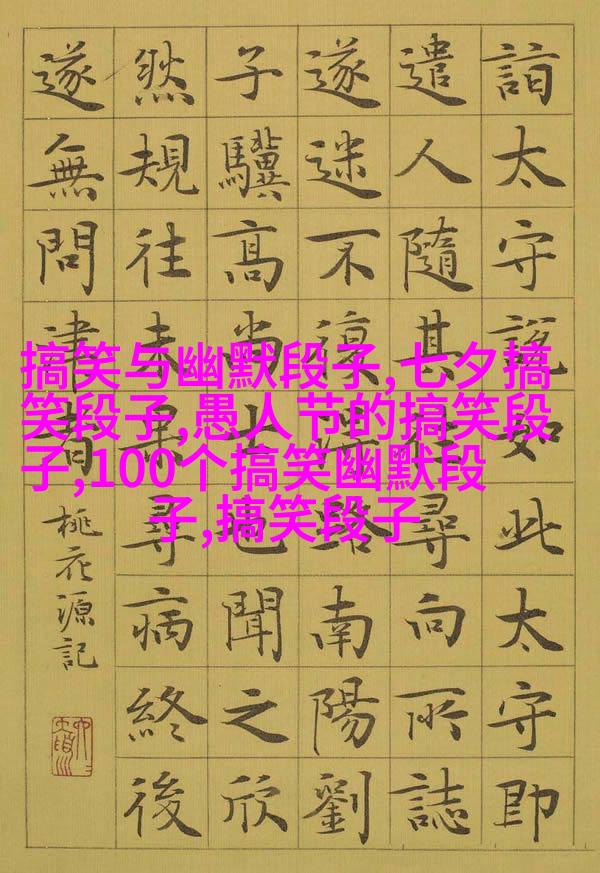 詣太守説如此太守即
遣人隨其往尋向所誌
遂迷不復得路南陽劉
子驥髙尚士也聞之欣
然規往未果尋病終後
遂無問津者
桃花源記
搞笑与幽默段子,七夕搞
笑段子,愚人节的搞笑段
子,100个搞笑幽默段
子,搞笑段子